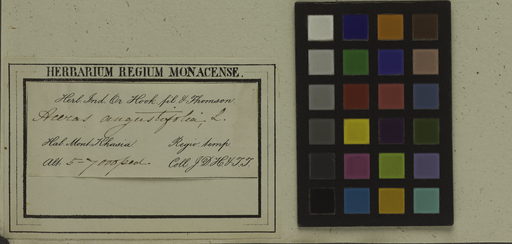 HERBARIUM REGIUM MONACENSE.
Herb. Ind. Or. Hook. fil. & Thomson
Aceras angustifolia, L.
Hab. Mont. Khasia Regio temp
Alt. 5-7000 ped. Coll. J. D. H. & T. T.